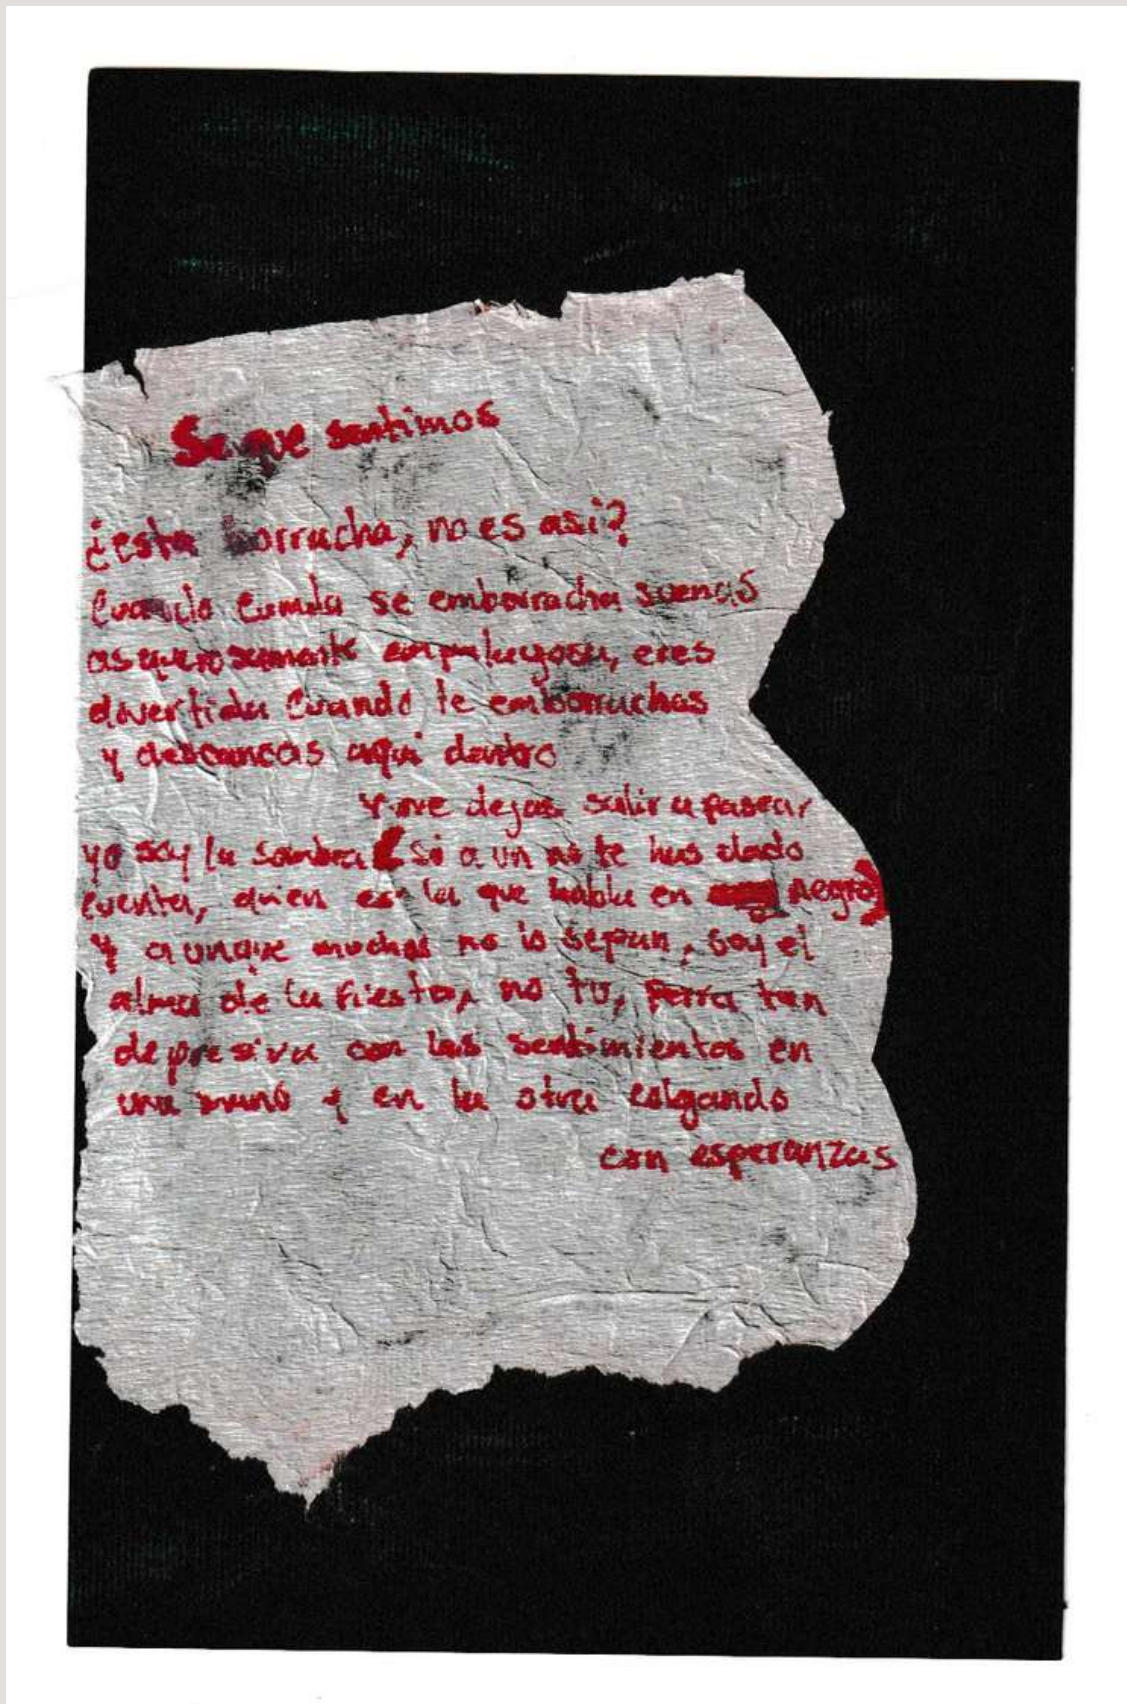 Se que sentimos
¿esta borracha, no es asi?
Cuando Camila se emborracha suenas
asquerosamente empalagosa, eres
divertida cuando te emborrachas
y descancas aqui dentro
Y me dejas salir a pasear
yo soy la sombra (si a un no te has dado
cuenta, quien es la que habla en negro)
Y aunque muchos no lo sepan, soy el
alma de la fiesta, no tu, perra tan
depresiva con los sentimientos en
una mano y en la otra colgando
con esperanzas